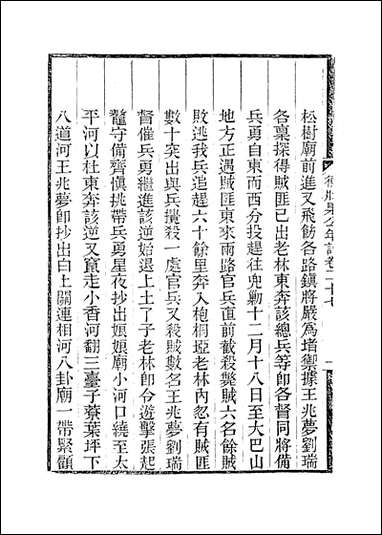 松樹廟前進又飛飭各路鎮將嚴爲堵禦據王兆夢劉瑞
各稟探得賊匪已出老林東奔該總兵等卽各督同將備
兵勇自東而西分投趕往兜勦十二月十八日至大巴山
地方正遇賊匪東來兩路官兵直前截殺斃賊六名餘賊
敗逃我兵追趕六十餘里奔入枹桐埡老林內忽有賊匪
數十突出與兵攪殺一處官兵又殺賊數名王兆夢劉瑞
督催兵勇繼進該逆始退上土了子老林卽令遊擊張起
鼇守備齊愼挑帶兵勇星夜抄出娘娘廟小河口繞至太
平河以杜東奔該逆又竄走小香河翻三臺子寮葉坪下
八道河王兆夢卽抄出白土關連相河八卦廟一帶緊顧
卷二十七